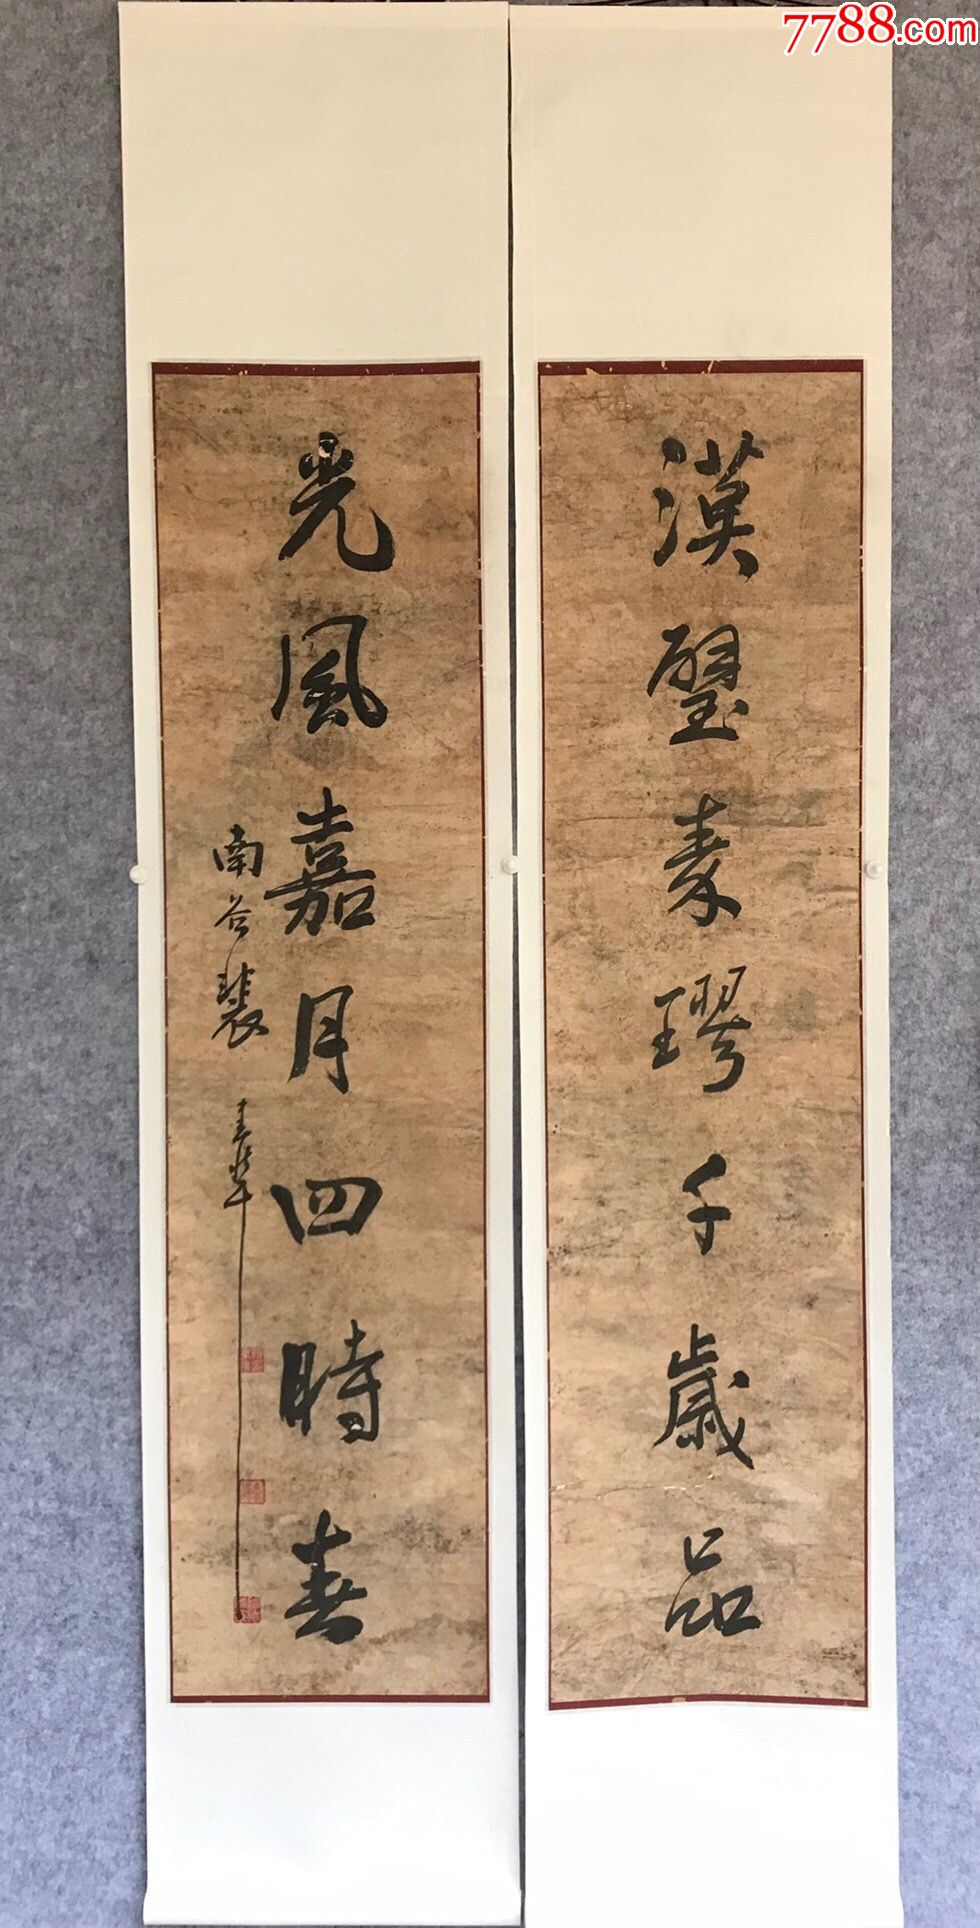 7788.com
漢璧秦璆千歲品
光風嘉月四時春
南谷裴